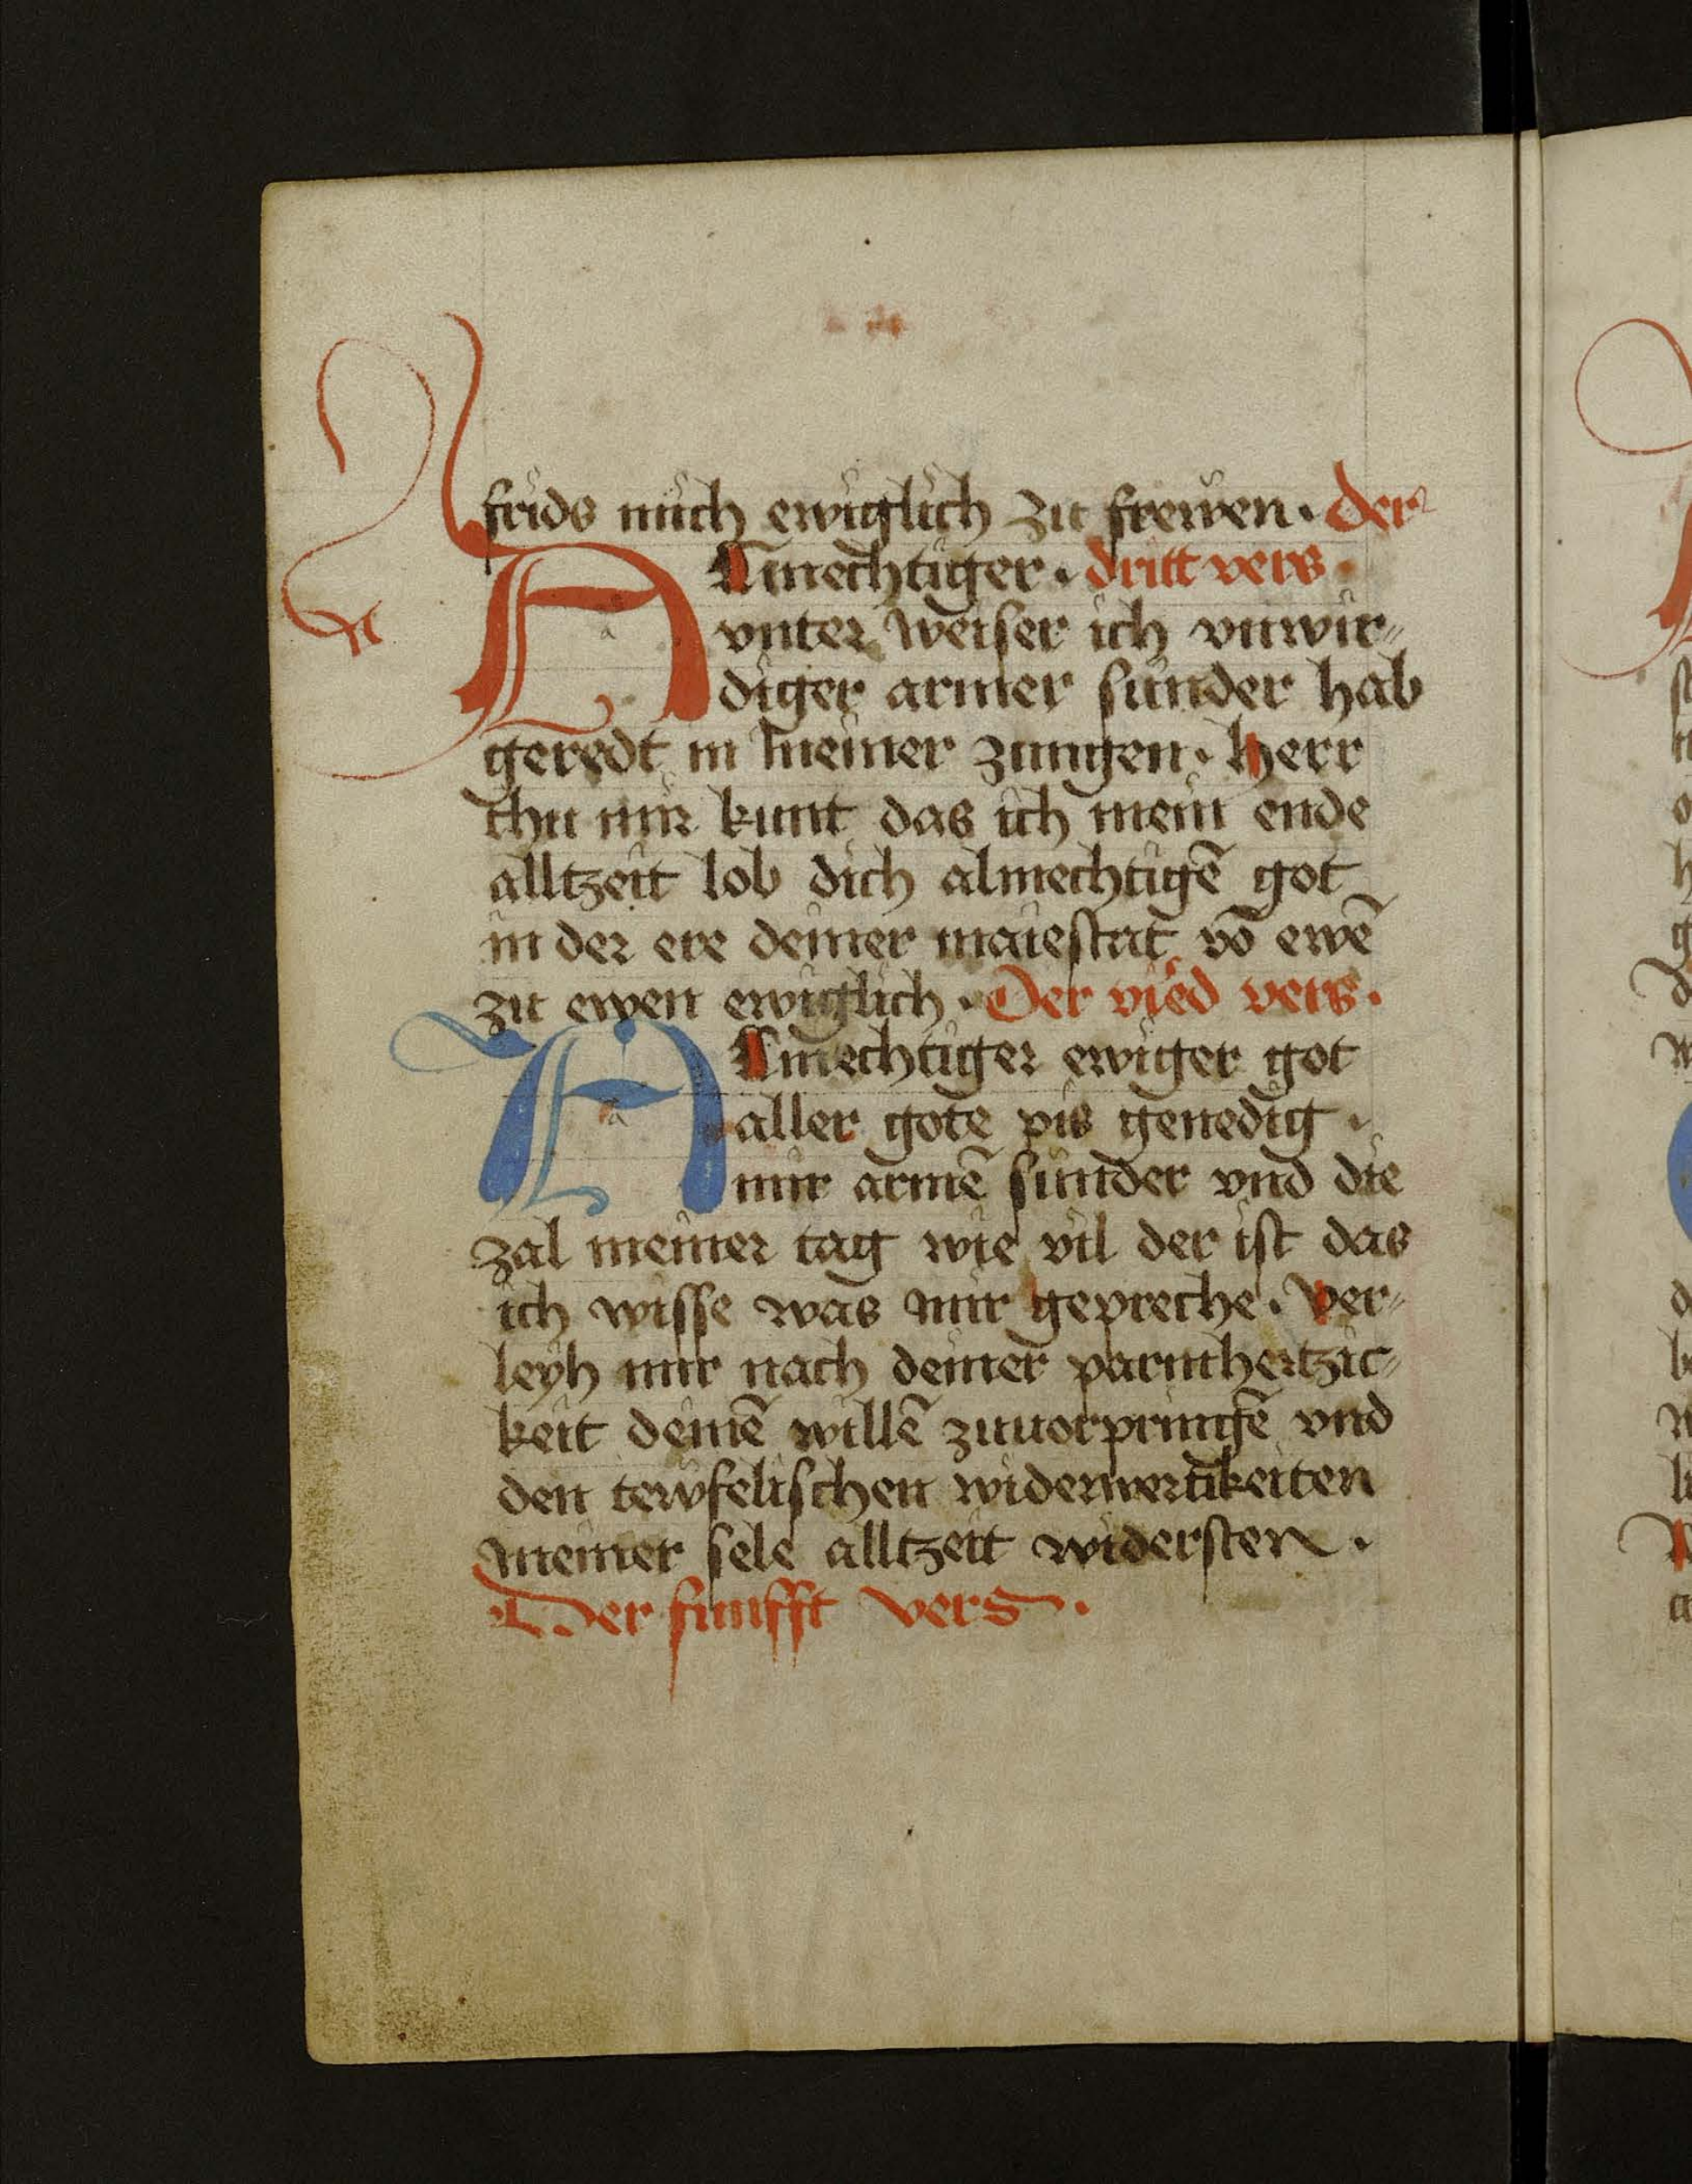 frids mich ewiglich zu frewen. der
ALmechtiger. dritt vers.
vnter weiser ich vnwir⸗
diger armer sunder hab
geredt in meiner zungen. Herr
thu mir kunt das ich mein ende
alltzeit lob dich almechtigē got
in der ere deiner maiestat vō ewē
zu ewen ewiglich. Der vied vers.
ALmechtiger ewiger got
aller gote pis genedig.
mir armē sunder vnd die
zal meiner tag wie vil der ist das
ich wisse was mir gepreche. Ver⸗
leyh mir nach deiner parmhertzic⸗
keit deinē willē zuuorpringē vnd
den tewfelischen widerwertikeiten
meiner sele alltzeit widersten.
Der funfft vers.